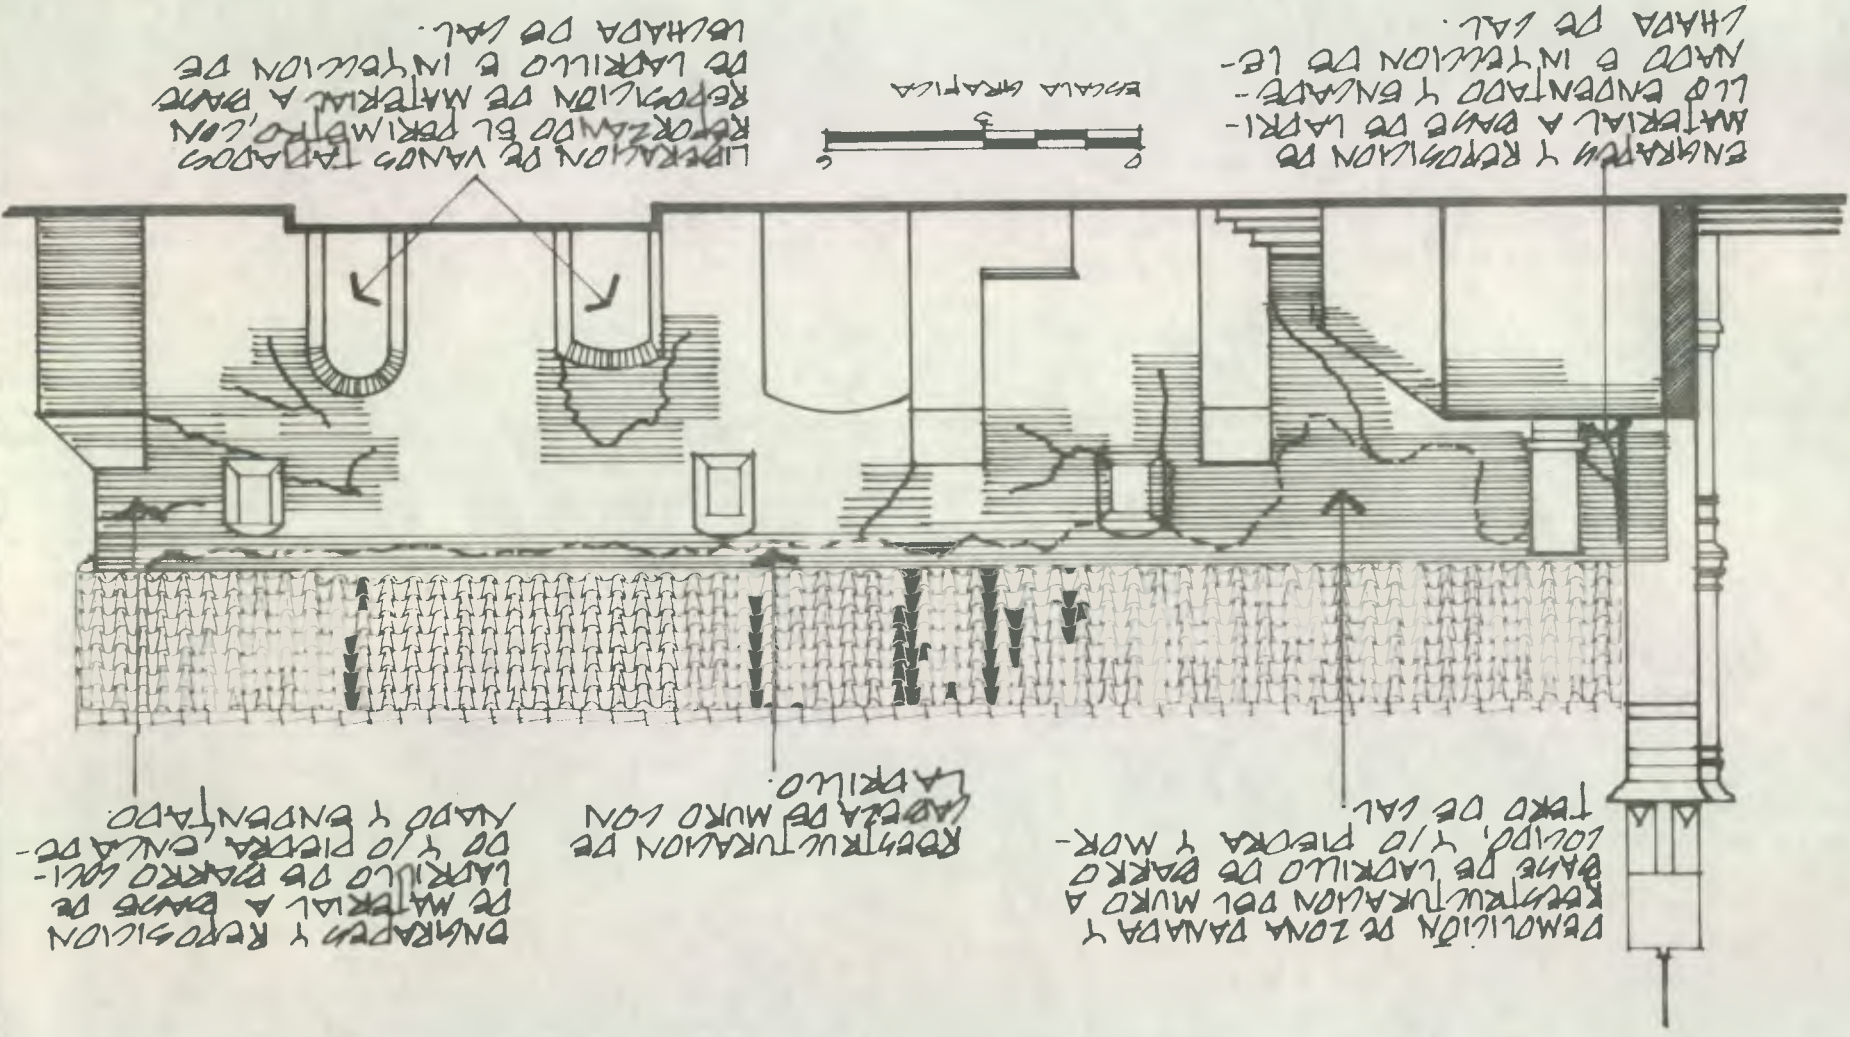 DEMOLICIÓN DE ZONA DANADA Y
REESTRUCTURACION DEL MURO A
BASE DE LADRILLO DE BARRO
COCIDO, Y/O PIEDRA Y MOR-
TERO DE CAL.
REESTRUCTURACION DE
CABEZA DE MURO CON
LADRILLO.
ENGRAPES Y REPOSICION
DE MATERIAL A BASE DE
LADRILLO DE BARRO COCI-
DO Y/O PIEDRA, ENCADE-
NADO Y ENDENTADO.
ENGRAPES Y REPOSICION DE
MATERIAL A BASE DE LADRI-
LLO ENDENTADO Y ENCADE-
NADO E INYECCION DE LE-
CHADA DE CAL.
0 6
3
ESCALA GRAFICA
LIBERACION DE VANOS TAPIADOS
REFORZANDO EL PERIMETRO, CON
REPOSICION DE MATERIAL A BASE
DE LADRILLO E INYECCION DE
LECHADA DE CAL.